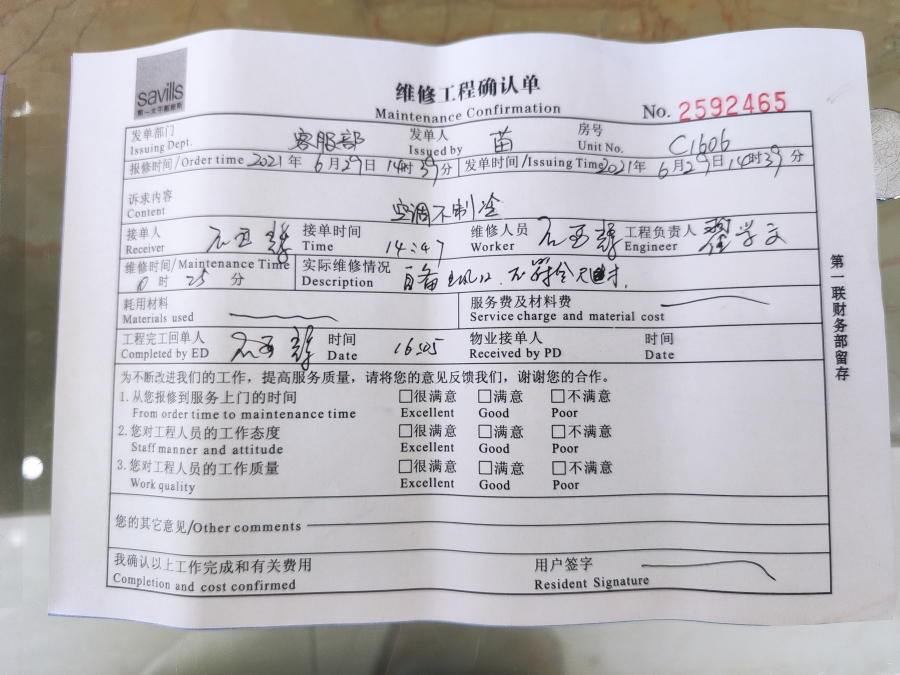 savills
第一太平戴维斯
维修工程确认单
Maintenance Confirmation
No. 2592465
发单部门 客服部 发单人 苗 房号 C1606
Issuing Dept. Issued by Unit No.
报修时间/Order time 2021年 6月29日 14时39分 发单时间/Issuing Time 2021年 6月29日 14时39分
诉求内容 空调不制冷
Content
接单人 接单时间 14:47 维修人员 工程负责人
Receiver Time Worker Engineer
维修时间/Maintenance Time 实际维修情况
0时 25分 Description
耗用材料 服务费及材料费
Materials used Service charge and material cost
工程完工回单人 时间 16:05 物业接单人 时间
Completed by ED Date Received by PD Date
为不断改进我们的工作，提高服务质量，请将您的意见反馈我们，谢谢您的合作。
1.从您报修到服务上门的时间 □很满意 □满意 □不满意
From order time to maintenance time Excellent Good Poor
2.您对工程人员的工作态度 □很满意 □满意 □不满意
Staff manner and attitude Excellent Good Poor
3.您对工程人员的工作质量 □很满意 □满意 □不满意
Work quality Excellent Good Poor
您的其它意见/Other comments
我确认以上工作完成和有关费用 用户签字
Completion and cost confirmed Resident Signature
第一联财务部留存